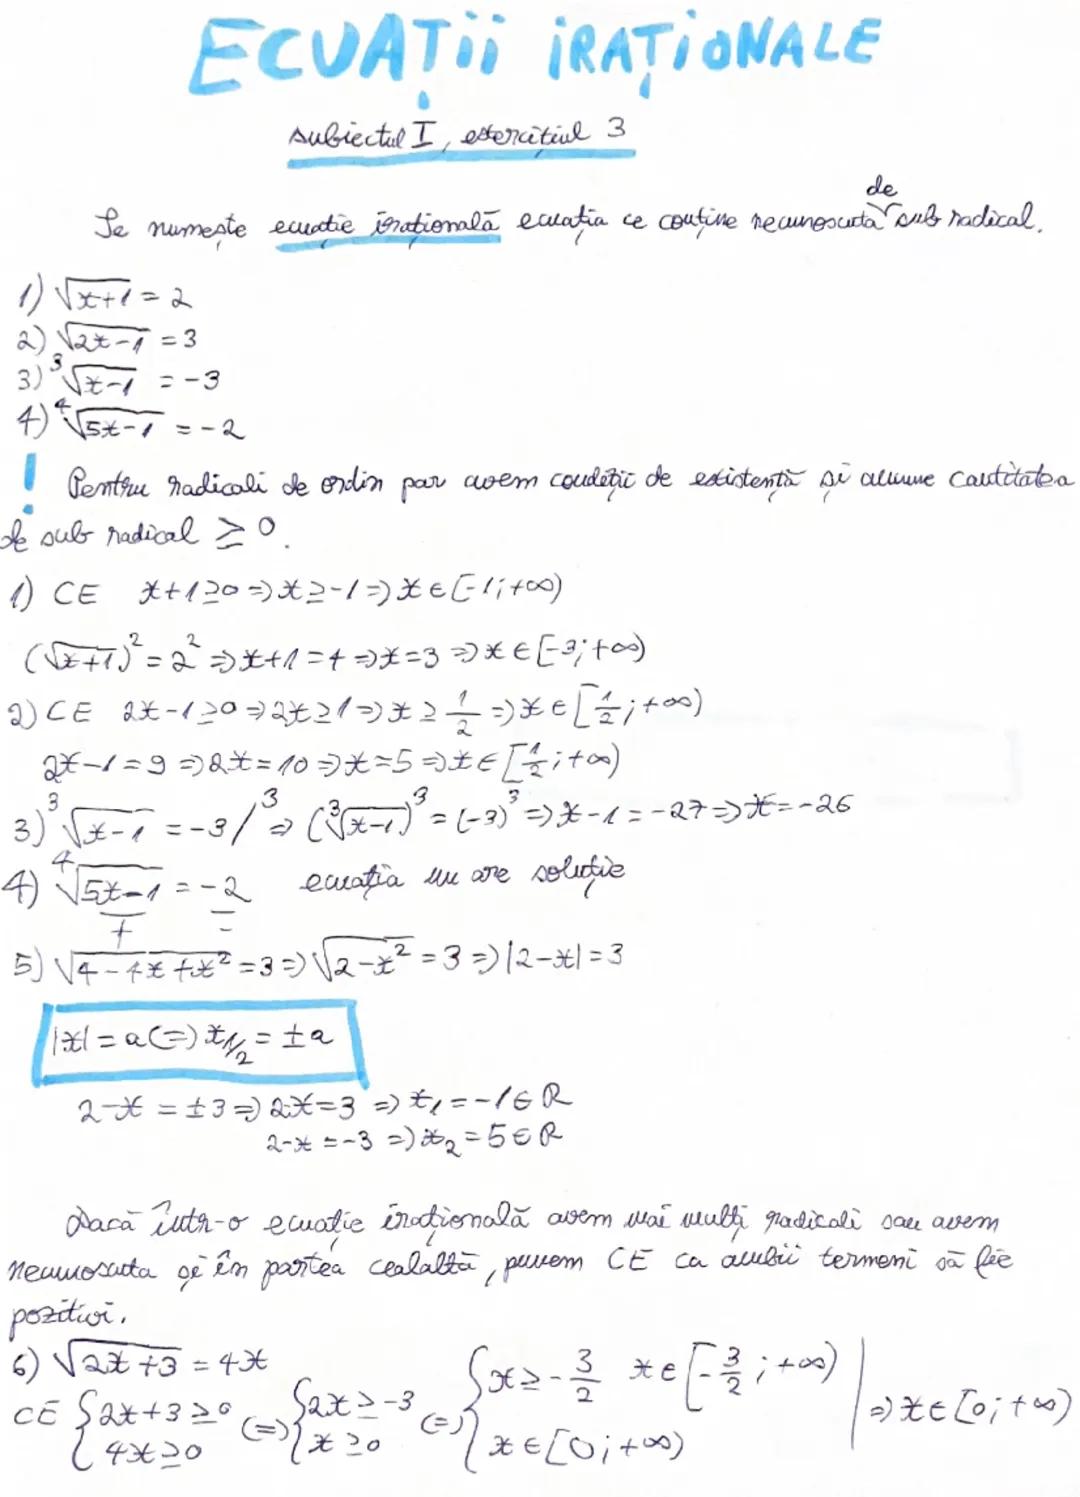 ECUAȚII IRAȚIONALE
subiectul I, exercițiul 3
Se numește ecuație irațională ecuația ce conține necunoscuta de sub radical.
1) √(x+1) = 2
2) √(2x-1) = 3
3) ³√(x-1) = -3
4) ⁴√(5x-1) = -2
! Pentru radicali de ordin par avem condiții de existență și anume cantitatea
de sub radical ≥ 0.
1) CE x+1≥0 => x≥-1 => x∈[-1;+∞)
(√(x+1))² = 2² => x+1=4 => x=3 => x∈[-3;+∞)
2) CE 2x-1≥0 => 2x≥1 => x≥1/2 => x∈[1/2;+∞)
2x-1=9 => 2x=10 => x=5 => x∈[1/2;+∞)
3) ³√(x-1) = -3 /³ => (³√(x-1))³ = (-3)³ => x-1=-27 => x=-26
4) ⁴√(5x-1) = -2 ecuația nu are soluție
+ =
5) √(4-4x+x²) = 3 => √(2-x²) = 3 => |2-x| = 3
|x| = a <=> x1/2 = ±a
2-x = ±3 => 2-x=3 => x₁=-1∈R
2-x=-3 => x₂=5∈R
Dacă într-o ecuație irațională avem mai mulți radicali sau avem
necunoscuta și în partea cealaltă, punem CE ca ambii termeni să fie
pozitivi.
6) √(2x+3) = 4x
CE {2x+3≥0 4x≥0 <=> {2x≥-3 x≥0 <=> {x≥-3/2 x∈[-3/2;+∞) x∈[0;+∞) | => x∈[0;+∞)